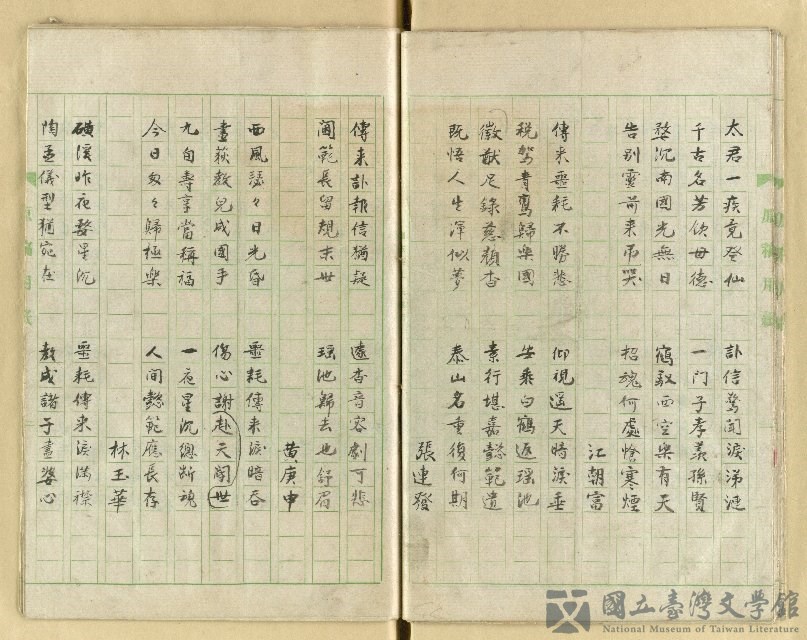 太君一疾竟登仙　訃信驚聞淚涕漣
千古名芳欽母德　一門子孝義孫賢
婺沉南國光無日　鶴馭西空樂有天
告別靈前來吊哭　招魂何處愴寒煙
江朝富
傳來噩耗不勝悲　仰視遥天暗淚垂
税駕青鸞歸樂國　安乘白鶴返瑶池
徽猷足錄慈顏杳　素行堪嘉懿範遺
既悟人生渾似夢　泰山名重復何期
張達發
傳來訃報信猶疑　遠杳音容劇可悲
閫範長留覩末世　瑶池歸去也舒眉
黄庚申
西風瑟々日光昏　噩耗傳來淚暗吞
畫荻教兒成國手　傷心謝赴天閽世
九旬壽享當稱福　一夜星沉總斷魂
今日匆々歸極樂　人间懿範應長存
林玉華
磺溪昨夜婺星沉　噩耗傳來淚滿襟
陶孟儀型猶宛在　教成諸子盡婆心
國立臺灣文學館
National Museum of Taiwan Literature